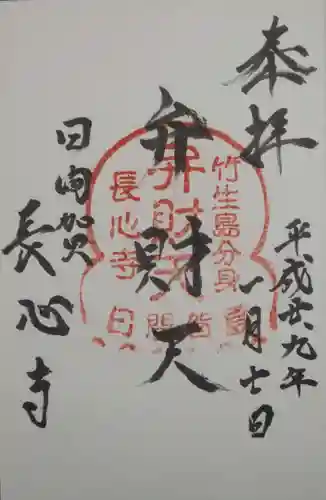 奉拝
平成廿九年
一月七日
弁財天
竹生島分身
弁財天
長心寺
日向賀
長心寺